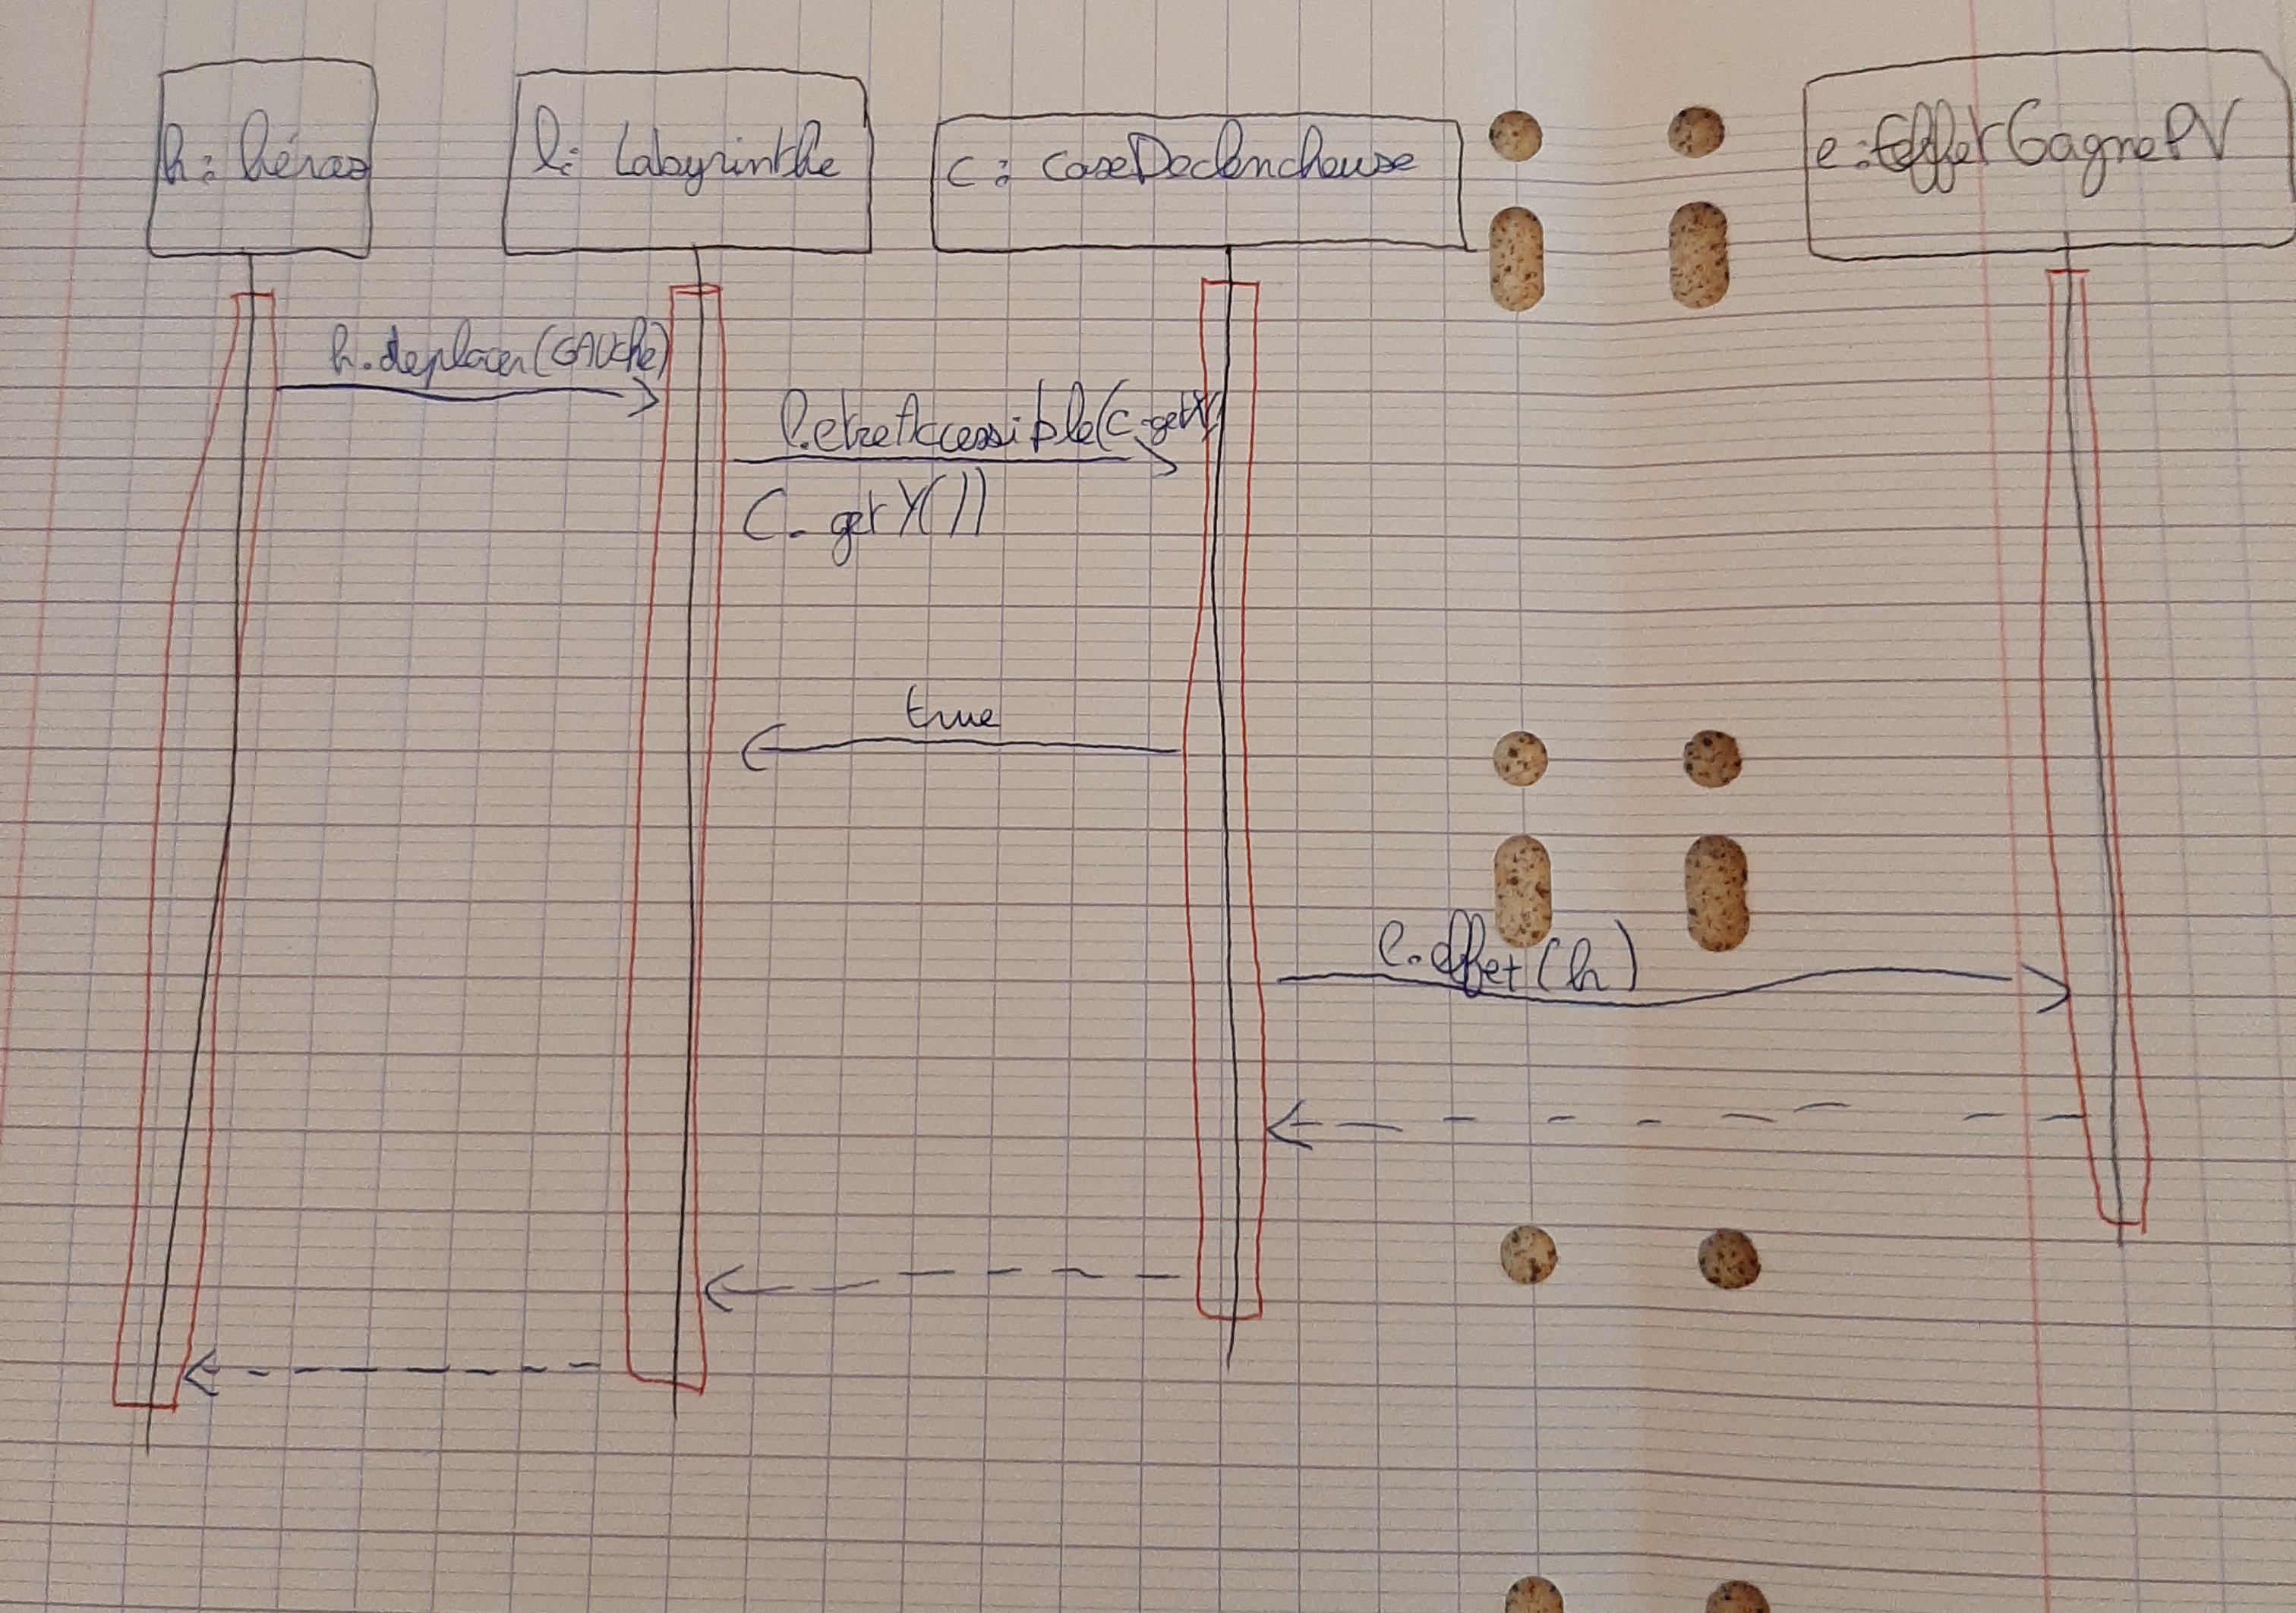 h: héros
l: Labyrinthe
c: caseDeclencheuse
e: EffetGagnePV
h.deplacer(GAUche)
l.etreAccessible(c.getX
C.getY())
true
e.effet(h)